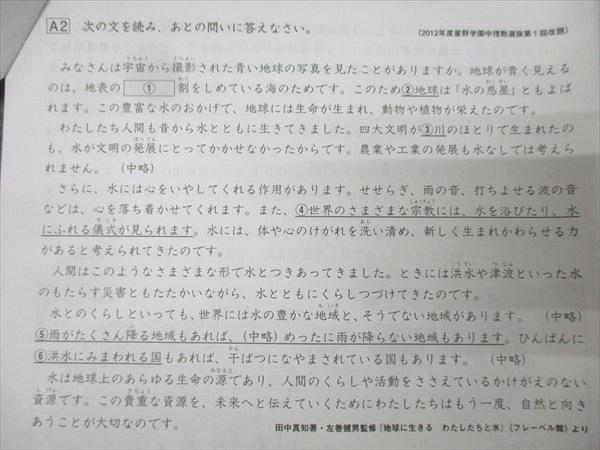 A2 次の文を読み、あとの問いに答えなさい。 (2012年度星野学園中理数選抜第1回改題)
みなさんは宇宙から撮影された青い地球の写真を見たことがありますか。地球が青く見える
のは、地表の ① 割をしめている海のためです。このため②地球は「水の惑星」ともよば
れます。この豊富な水のおかげで、地球には生命が生まれ、動物や植物が栄えたのです。
わたしたち人間も昔から水とともに生きてきました。四大文明が③川のほとりで生まれたの
も、水が文明の発展にとってかかせなかったからです。農業や工業の発展も水なしでは考えら
れません。(中略)
さらに、水には心をいやしてくれる作用があります。せせらぎ、雨の音、打ちよせる波の音
などは、心を落ち着かせてくれます。また、④世界のさまざまな宗教には、水を浴びたり、水
にふれる儀式が見られます。水には、体や心のけがれを洗い清め、新しく生まれかわらせる力
があると考えられてきたのです。
人間はこのようなさまざまな形で水とつきあってきました。ときには洪水や津波といった水
のもたらす災害ともたたかいながら、水とともにくらしつづけてきたのです。
水とのくらしといっても、世界には水の豊かな地域と、そうでない地域があります。(中略)
⑤雨がたくさん降る地域もあれば、(中略)めったに雨が降らない地域もあります。ひんぱんに
⑥洪水にみまわれる国もあれば、干ばつになやまされている国もあります。(中略)
水は地球上のあらゆる生命の源であり、人間のくらしや活動をささえているかけがえのない
資源です。この貴重な資源を、未来へと伝えていくためにわたしたちはもう一度、自然と向き
あうことが大切なのです。
田中真知著・左巻健男監修『地球に生きる わたしたちと水』(フレーベル館)より